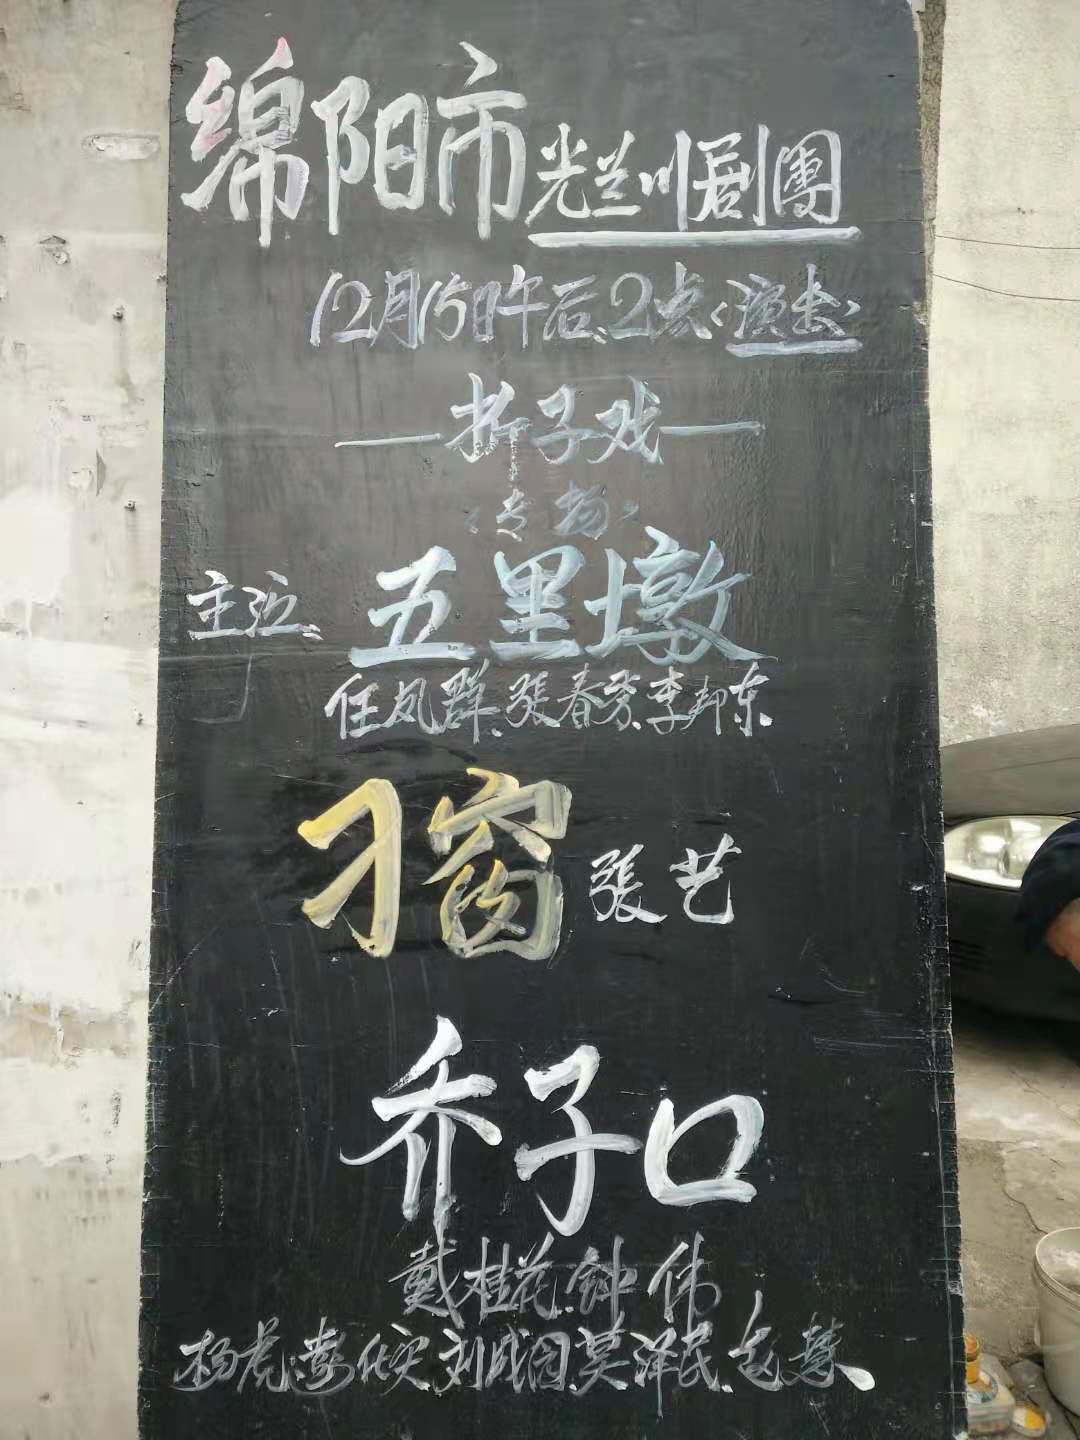 绵阳市光兰川剧團
12月15日午后、2点<演出>
—折子戏—
<专场>
主演、五里墩
任凤群、張春芳、李邦东
刁窗 張艺
乔子口
戴桂花、钟伟
杨虎、彭代实、刘成国、莫泽民、赵慧、